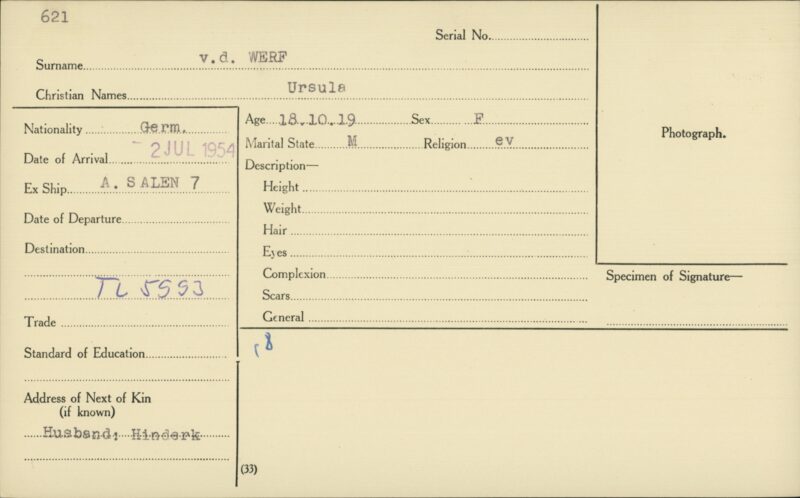 621
Serial No.
Surname v.d. WERF
Christian Names Ursula
Nationality Germ.
Date of Arrival - 2 JUL 1954
Ex Ship A. SALEN 7
Date of Departure
Destination
TL 5993
Trade
Standard of Education
Address of Next of Kin
(if known)
Husband: Hinderk
Age 18.10.19 Sex F
Marital State M Religion ev
Description—
Height
Weight
Hair
Eyes
Complexion
Scars
General
(33)
Photograph.
Specimen of Signature—